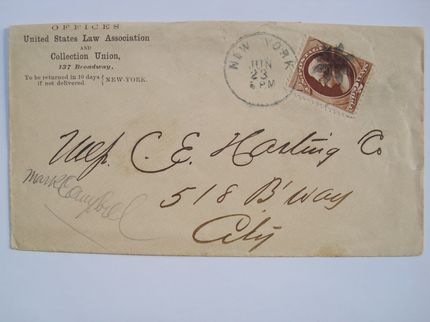 OFFICES
United States Law Association
AND
Collection Union,
137 Broadway,
To be returned in 10 days if not delivered } NEW-YORK.
NEW YORK
JUN
23
6 PM
C. E. Hasting Co
518 B'way
City
Mark Campbell